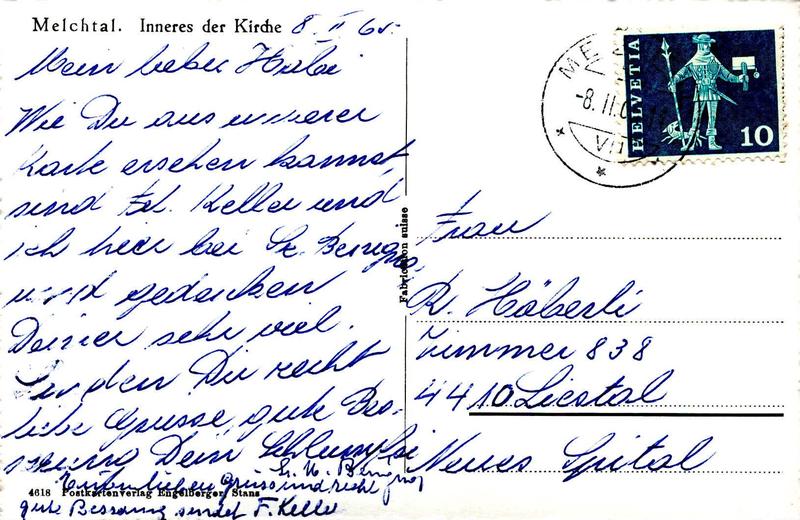 Melchtal. Inneres der Kirche 8. II 65.
Mein lieber Häbi
Wie Du aus unserer
Karte ersehen kannst,
sind Frl. Keller und
ich hier bei Sr. Benigna,
und gedenken
Deiner sehr viel.
Senden Dir recht
liebe Grüsse, gute Bes-
serung Dein Schlumpfi
Sr. M. Benigna
Grüss und recht
gute Besserung sendet F. Keller
4618 Postkartenverlag Engelberger Stans
Fabrication suisse
HELVETIA
10
-8. II.
Frau
R. Häberli
Zimmer 838
4410 Liestal
Neues Spital